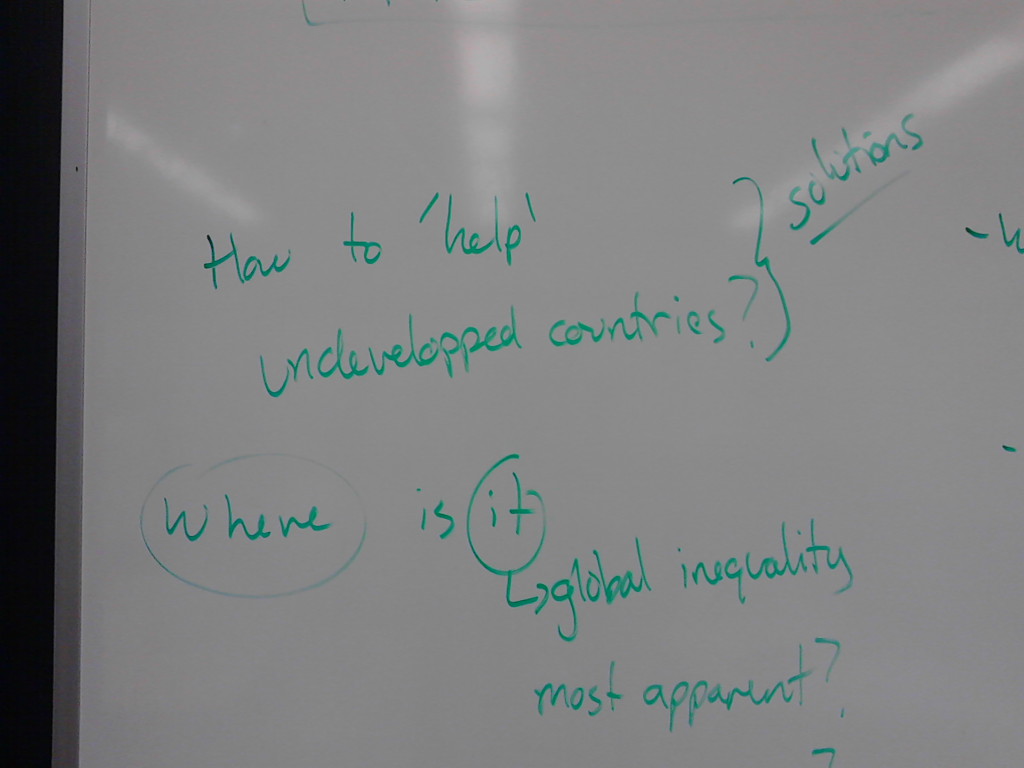 How to 'help'
undevelopped countries?
solutions
Where is it
global inequality
most apparent?